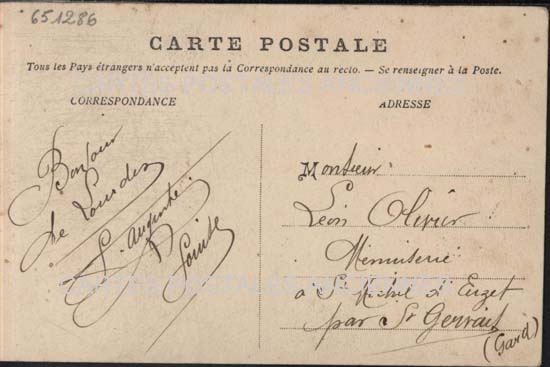 651286
CARTE POSTALE
Tous les Pays étrangers n'acceptent pas la Correspondance au recto. — Se renseigner à la Poste.
CORRESPONDANCE
Bonjour
de Lourdes
ADRESSE
Monsieur
Léon Olivier
Menuiserie
à St Michel d'Euzet
par St Gervais
(Gard)
CARTES POSTALES ANCIENNES